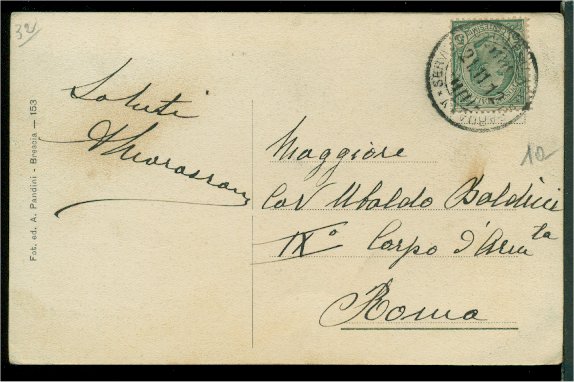 32
Saluti
Fot. ed. A. Pandini - Brescia — 153
10
Maggiore
Cav Ubaldo Baldini
IX° Corpo d'Arm ta
Roma